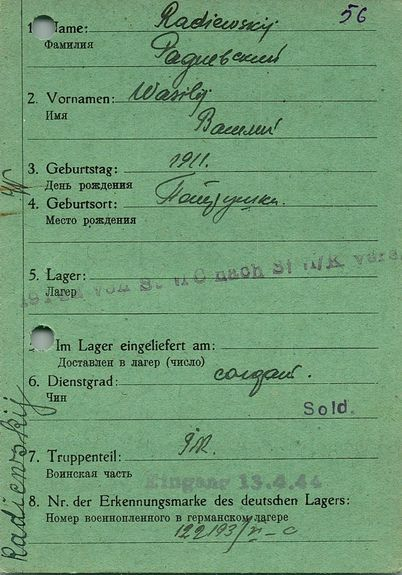 56
1. Name: Radiewskij
Фамилия Радиевский
2. Vornamen: Wasilij
Имя
Василий
3. Geburtstag: 1911.
День рождения
4. Geburtsort:
Место рождения
5. Lager:
Лагер
nach St
Im Lager eingeliefert am:
Доставлен в лагер (число)
6. Dienstgrad: солдат.
Чин
Sold.
7. Truppenteil:
Воинская часть
Eingang 13.4.44
8. Nr. der Erkennungsmarke des deutschen Lagers:
Номер военнопленного в германском лагере
122193/VI-C
Radiewskij